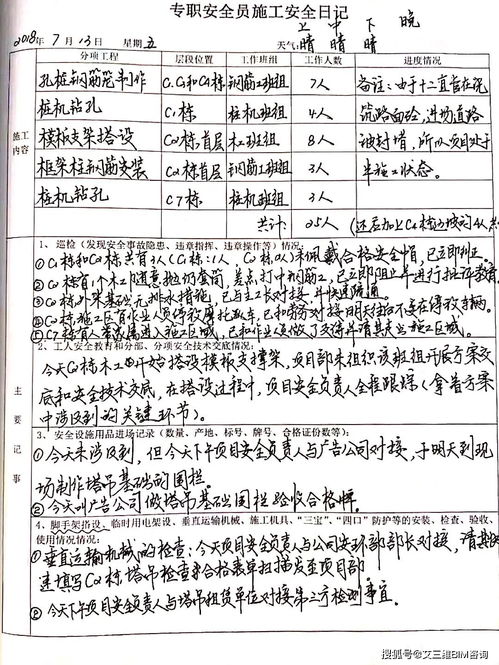 专职安全员施工安全日记
上 中 下 晚
2018年 7月 13日 星期五 天气:晴 晴 晴
分项工程 层段位置 工作班组 工作人数 进度情况
施工内容
孔桩钢筋笼制作 钢筋工班组 7人 备注:由于十二直在浇
桩机钻孔 C1栋 桩机班组 4人 筑路面砼,进场道路
模板支架搭设 C02栋首层 木工班组 8人 被封堵,所以项目处于
框架柱钢筋安装 C02栋首层 钢筋工班组 3人 半施工状态。
桩机钻孔 C7栋 桩机班组 3人
共计 25人
主要记事
1、巡检(发现安全事故隐患、违章指挥、违章操作等)情况:
共有3人 未佩戴合格安全帽,已立即纠正。
②C02栋有个木工随意抛扔套筒,差点打中钢筋工,已立即阻止并进行批评教育
基础无排水措施,已与主工长对接,并快速疏通。
施工区有作业人员停放摩托车,已和劳务对接明天起不要在停放车辆。
⑤C7栋有人带家属进入施工区域,已和作业员做了交待并请其离开施工区域。
2、工人安全教育和分部、分项安全技术交底情况:
今天C02栋木工开始搭设模板支撑架,项目部未组织该班组开展方案交
底和安全技术交底,在搭设过程中,项目安全负责人全程跟踪(拿着方案
中涉及到的关键环节)。
3、安全设施用品进场记录(数量、产地、标号、牌号、合格证份数等):
①今天未涉及到,但今天下午项目安全负责人与广告公司对接,于明天到现
场制作塔吊基础的围栏。
②今天叫广告公司做塔吊基础围栏验收合格牌。
4、脚手架搭设、临时用电架设、垂直运输机械、施工机具、“三宝”、“四口”防护等的安装、检查、验收、
使用情况情况:
①垂直运输机械的检查:今天项目安全负责人与公司安环部部长对接,请其快
速填写C02栋塔吊检查合格表单扫描发至项目部
②今天下午项目安全负责人与塔吊租赁单位对接第三方检测事宜。
搜狐号@艾三维BIM咨询